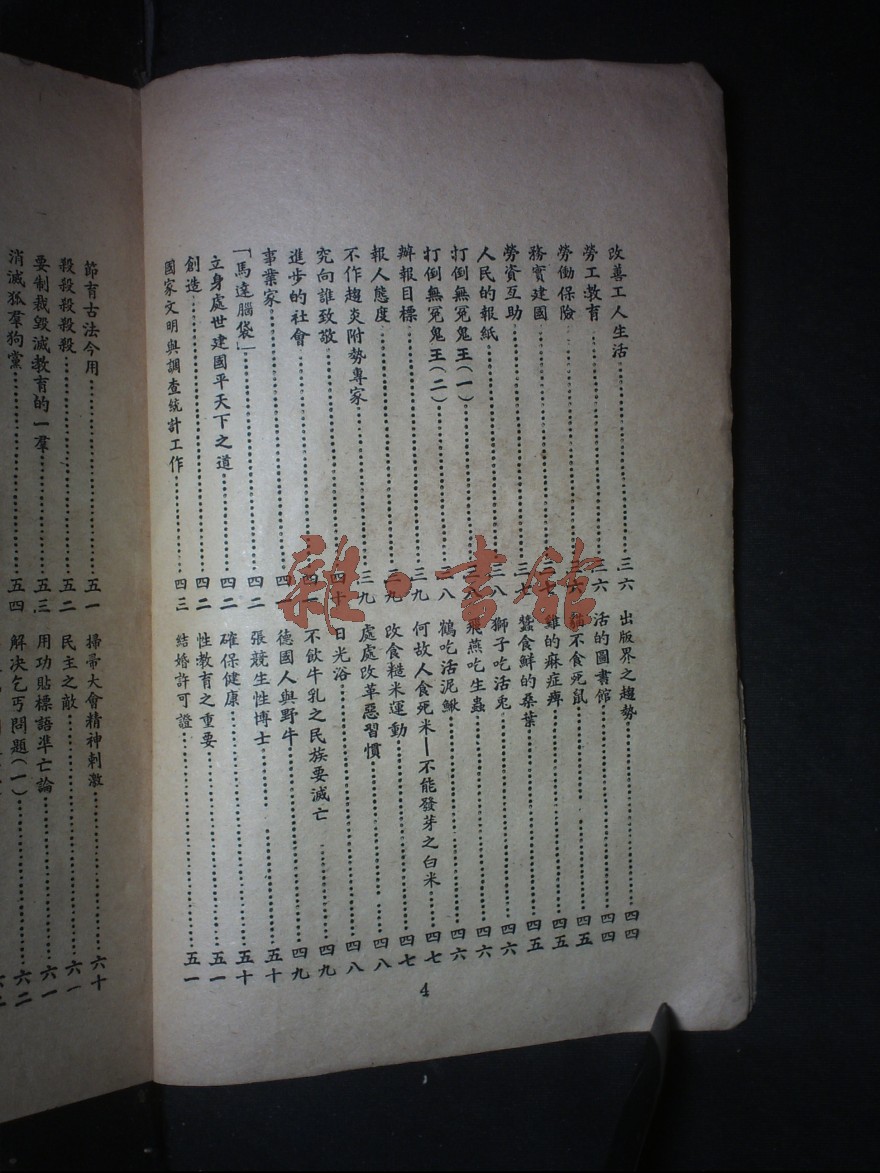 改善工人生活……三六
勞工教育……三六
勞働保險……三六
務實建國……三七
勞資互助……三七
人民的報紙……三八
打倒無冕鬼王(一)……三八
打倒無冕鬼王(二)……三八
辦報目標……三九
報人態度……三九
不作趨炎附勢專家……三九
究向誰致敬……四十
進步的社會……四一
事業家……四一
「馬達腦袋」……四二
立身處世建國平天下之道……四二
創造……四二
國家文明與調查統計工作……四三
出版界之趨勢……四四
活的圖書館……四四
貓不食死鼠……四五
雞的痳症痺……四五
蠶食鮮的桑葉……四五
獅子吃活兎……四六
飛燕吃生蟲……四六
鶴吃活泥鰍……四六
何故人食死米—不能發芽之白米……四七
改食糙米運動……四七
處處改革惡習慣……四八
日光浴……四八
不飲牛乳之民族要滅亡……四九
德國人與野牛……四九
張競生性博士……五十
確保健康……五十
性教育之重要……五一
結婚許可證……五一
4
節育古法今用……五一
殺殺殺殺殺……五二
要制裁毀滅教育的一羣……五三
消滅狐羣狗黨……五四
掃帚大會精神刺激……六十
民主之敵……六一
用功貼標語準亡論……六一
解决乞丐問題(一)……六二
雜·書館